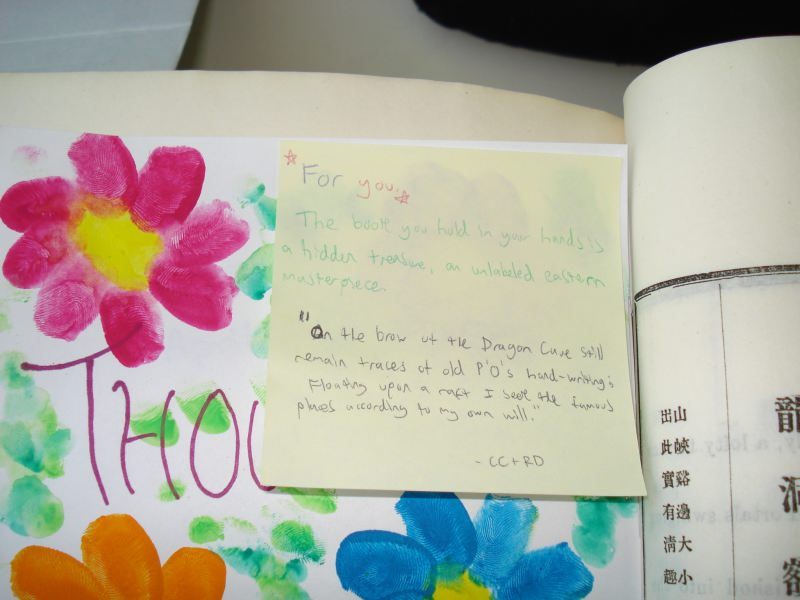 For you.
The book you hold in your hands is
a hidden treasure, an unlabeled eastern
masterpiece.
"On the brow of the Dragon Cave still
remain traces of old P'O's hand-writing;
Floating upon a raft I seek the famous
places according to my own will."
- CC + RD
THOU
龍洞
山峽谿邊大小
出此實有清趣